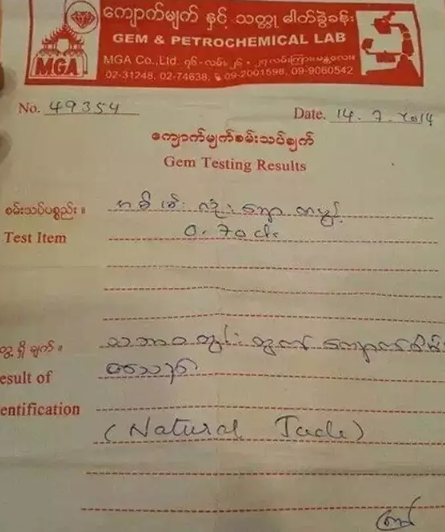 ကျောက်မျက် နှင့် သတ္တု ဓါတ်ခွဲခန်း
GEM & PETROCHEMICAL LAB
MGA Co., Ltd. ၇၆-လမ်း၊ ၂၆
02-31248, 02-74638, 09-2001596, 09-9060542
MGA
No. 49354 Date. 14.7.2014
ကျောက်မျက်စမ်းသပ်ချက်
Gem Testing Results
စမ်းသပ်ပစ္စည်း။
Test Item 0.70 ct
တွေ့ရှိချက်။ သဘာဝတွင်းထွက် ကျောက်စိမ်း
esult of
entification
(Natural Jade)